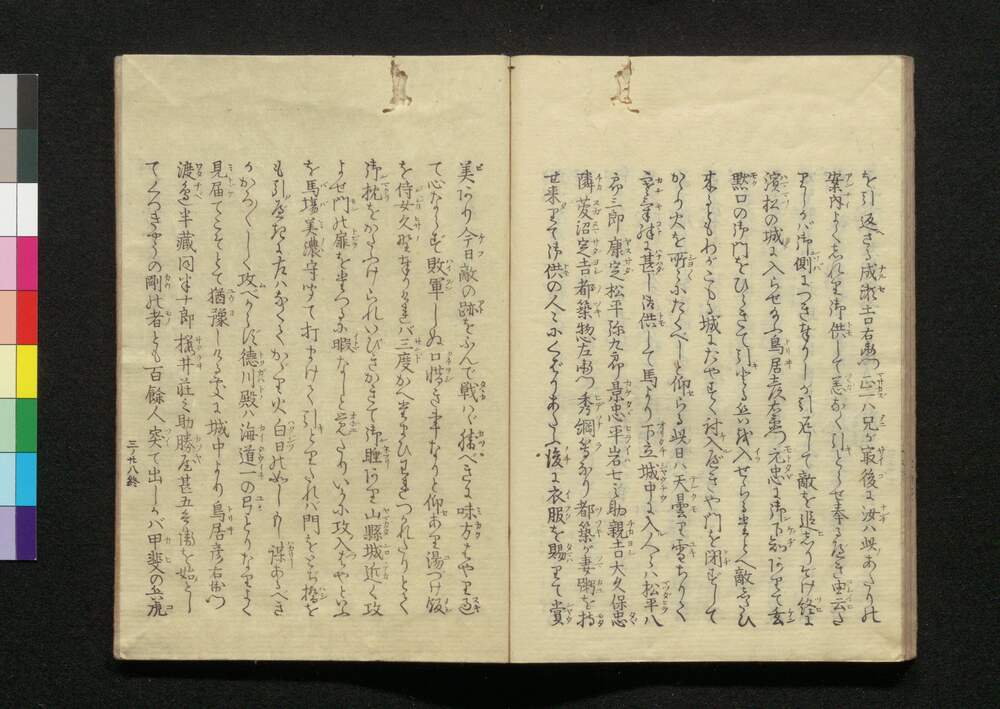 を引返さる成瀬吉右衛門正一ハ兄が最後に汝ハ此あたりの
案内よくしれり御供して恙なく引とらせ奉るべき由云
しかバ御側につきまゐらせしが引返して敵を追しりぞけ終に
濱松の城に入らせ給ふ鳥居彦右衛門元忠に御下知ありて玄
黙口の御門をひらきて引とる兵を入せらるまして敵
来るともわがこもる城にたやすく討入べきや門を閉ずして
かゞり火を所々にたくべしと仰らる此日ハ天曇り雪ちりて
寒気殊に甚し御供して馬より下立城中に入人々ハ松平八
郎三郎康定松平弥九郎景忠平岩七之助親吉大久保忠
隣菱沼定吉都築惣左衛門秀綱等なり都築が妻粥を持
せ来りて御供の人々にくばりあたふ後に衣服を賜りて賞
美あり今日敵の跡をふんで戦ハゞ勝べきに味方はやり過
て心ならず敗軍しぬ口惜き事なりと仰あり湯づけ飯
を侍女久野奉りけれバ三度かへまゐり
御枕をかたふけられいびきかきて御睡あり山縣城近く攻
よせ門の扉をとづるに暇なしと覚えたりいざ攻入ばやといふ
を馬場美濃守聞て打まけて引とりたれバ門をとぢ橋を
も引べきに左ハなくてかゞり火白日の如し謀あるべき
かろ〴〵しく攻べからず徳川殿ハ海道一の弓とりなりよく
見届てこそとて猶豫しける處に城中より鳥居彦右衛門
渡邉半藏同半十郎櫻井荘之助勝屋甚五兵衛を始とし
て くつきやうの剛の者ども百餘人突て出しかバ甲斐の兵
三ノ廿八終